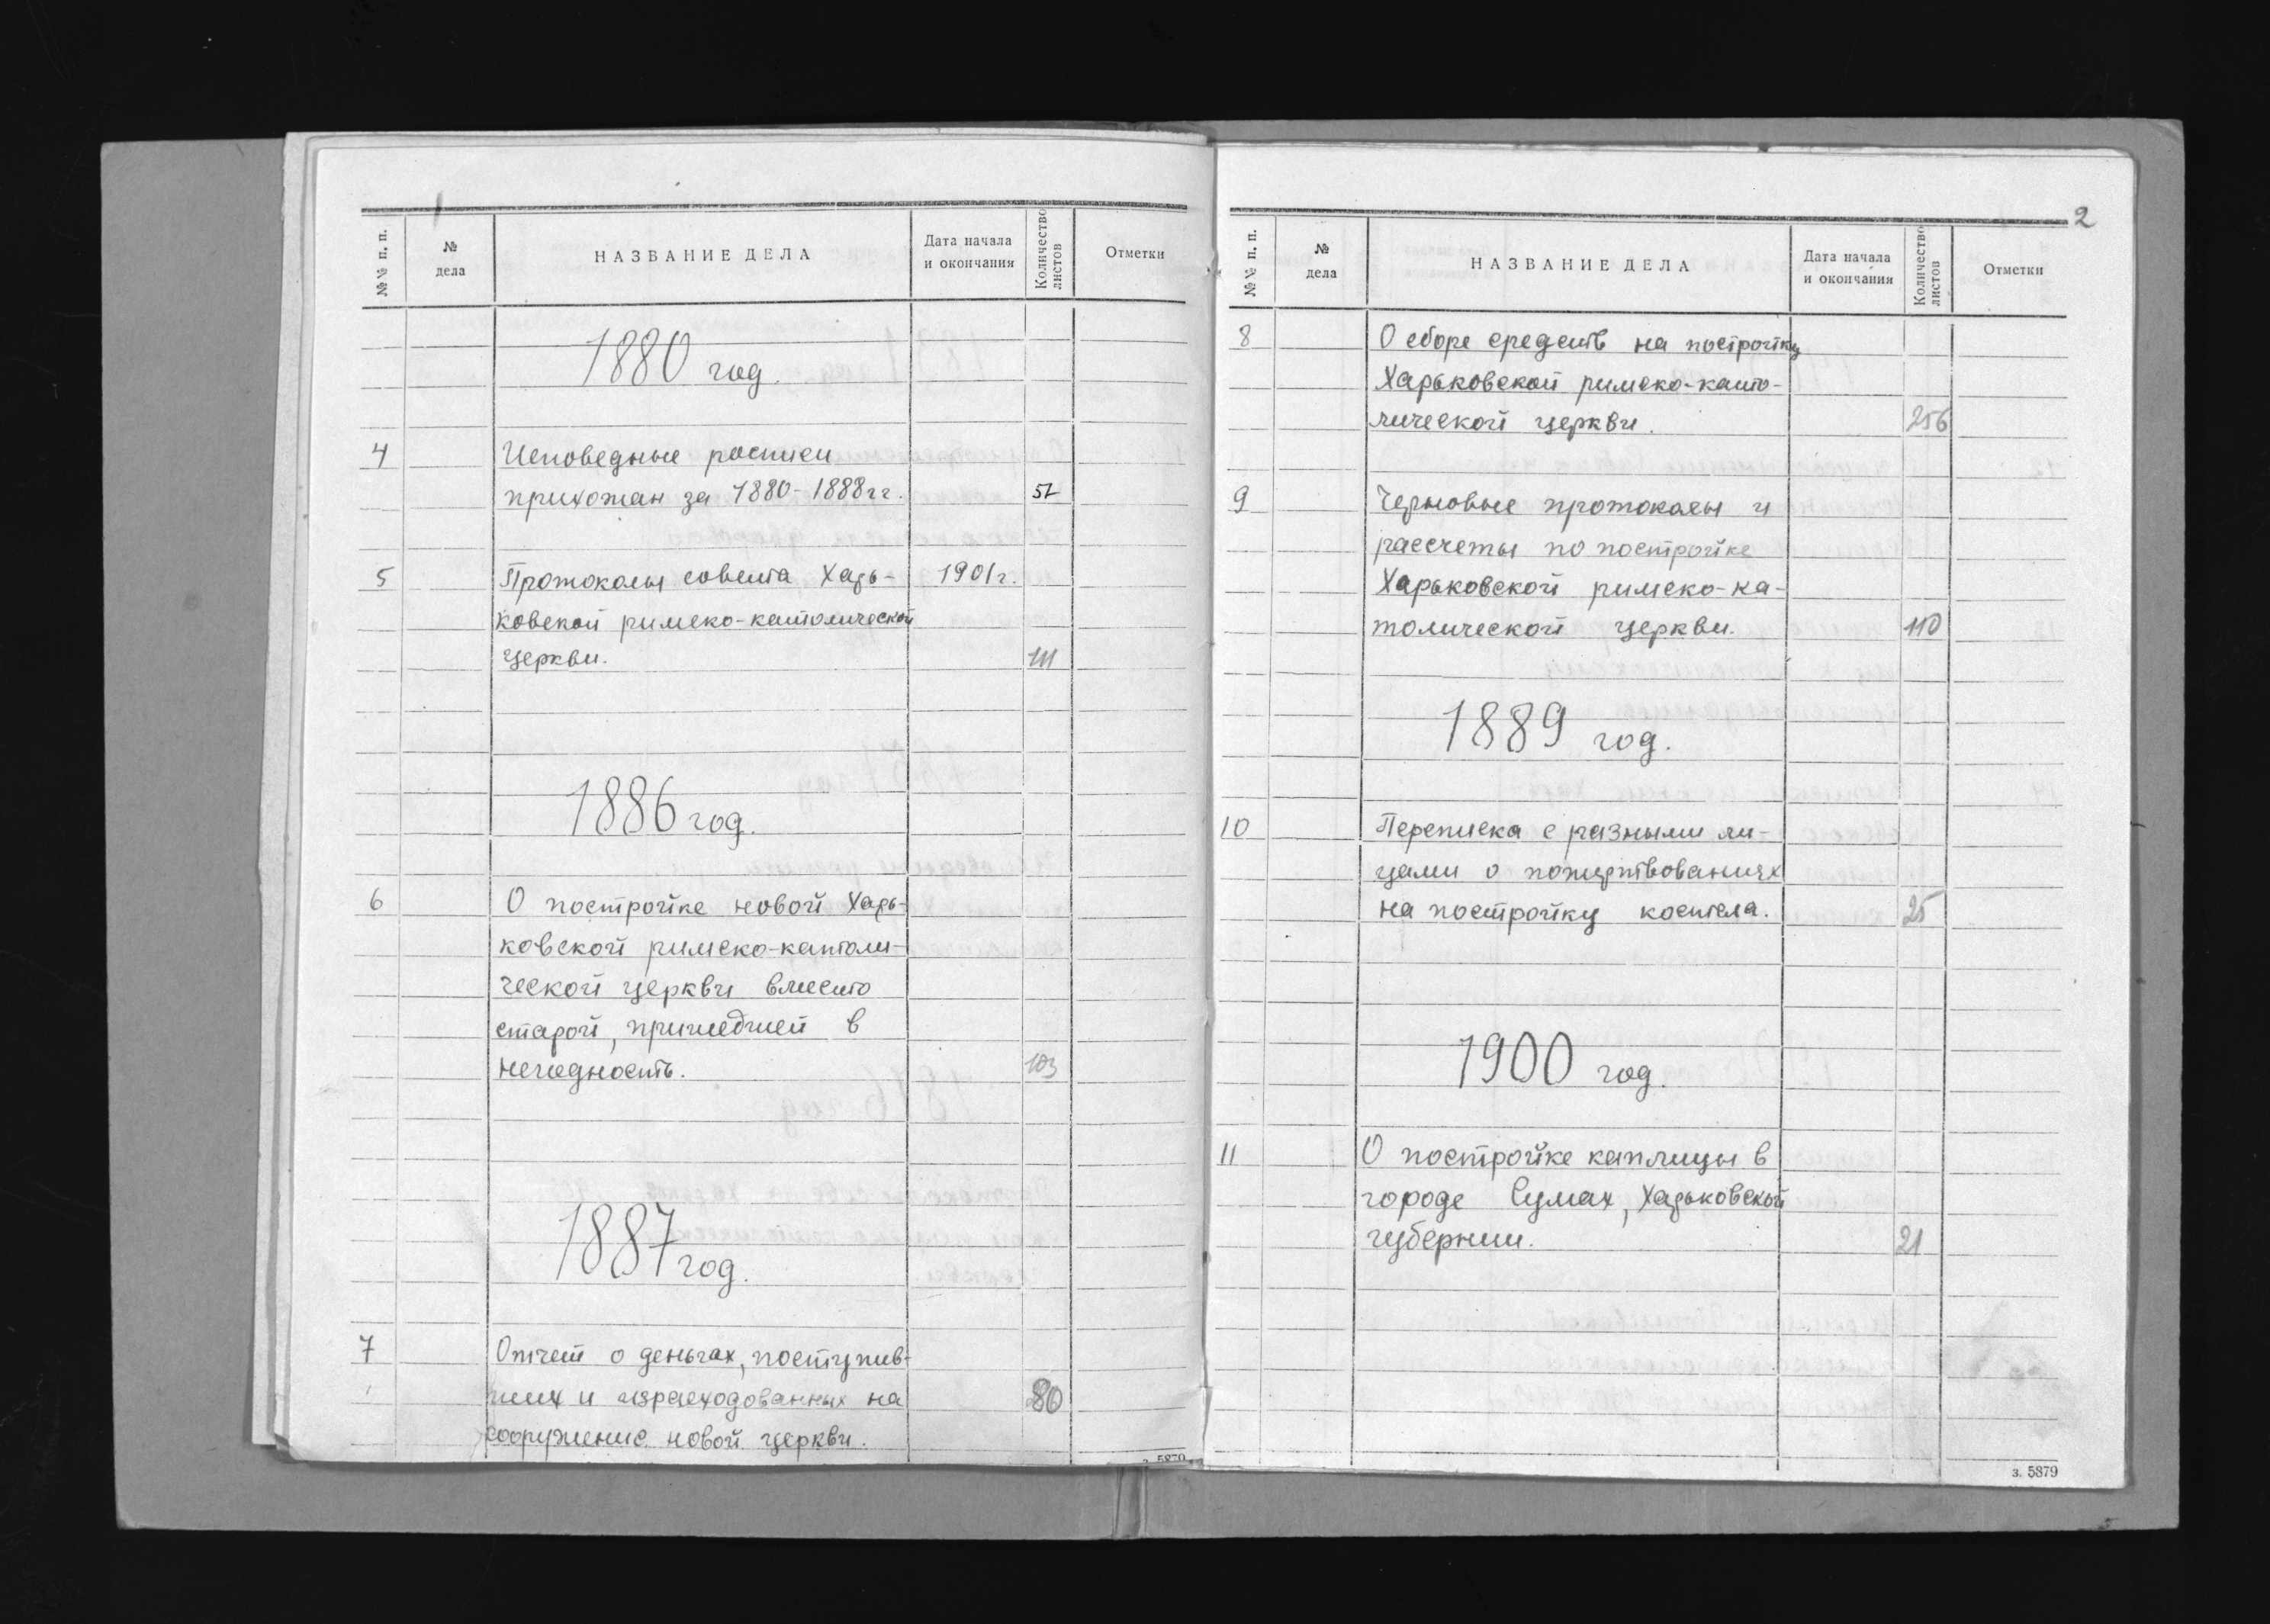 №№ п. п.
№ дела
НАЗВАНИЕ ДЕЛА
Дата начала и окончания
Количество листов
Отметки
1880 год.
4 Исповедные росписи
прихожан за 1880-1888 гг. 57
5 Протоколы совета Харь- 1901 г.
ковской римско-католической
церкви. 111
1886 год.
6 О постройке новой Харь-
ковской римско-католи-
ческой церкви вместо
старой, пришедшей в
негодность. 103
1887 год.
7 Отчет о деньгах, поступив-
ших и израсходованных на 80
сооружение новой церкви.
з. 5879
2
№№ п. п.
№ дела
НАЗВАНИЕ ДЕЛА
Дата начала и окончания
Количество листов
Отметки
8 О сборе средств на постройку
Харьковской римско-като-
лической церкви. 256
9 Черновые протоколы и
рассчеты по постройке
Харьковской римско-ка-
толической церкви. 110
1889 год.
10 Переписка с разными ли-
цами о пожертвованиях
на постройку костела. 25
1900 год.
11 О постройке каплицы в
городе Сумах, Харьковской
губернии. 21
з. 5879